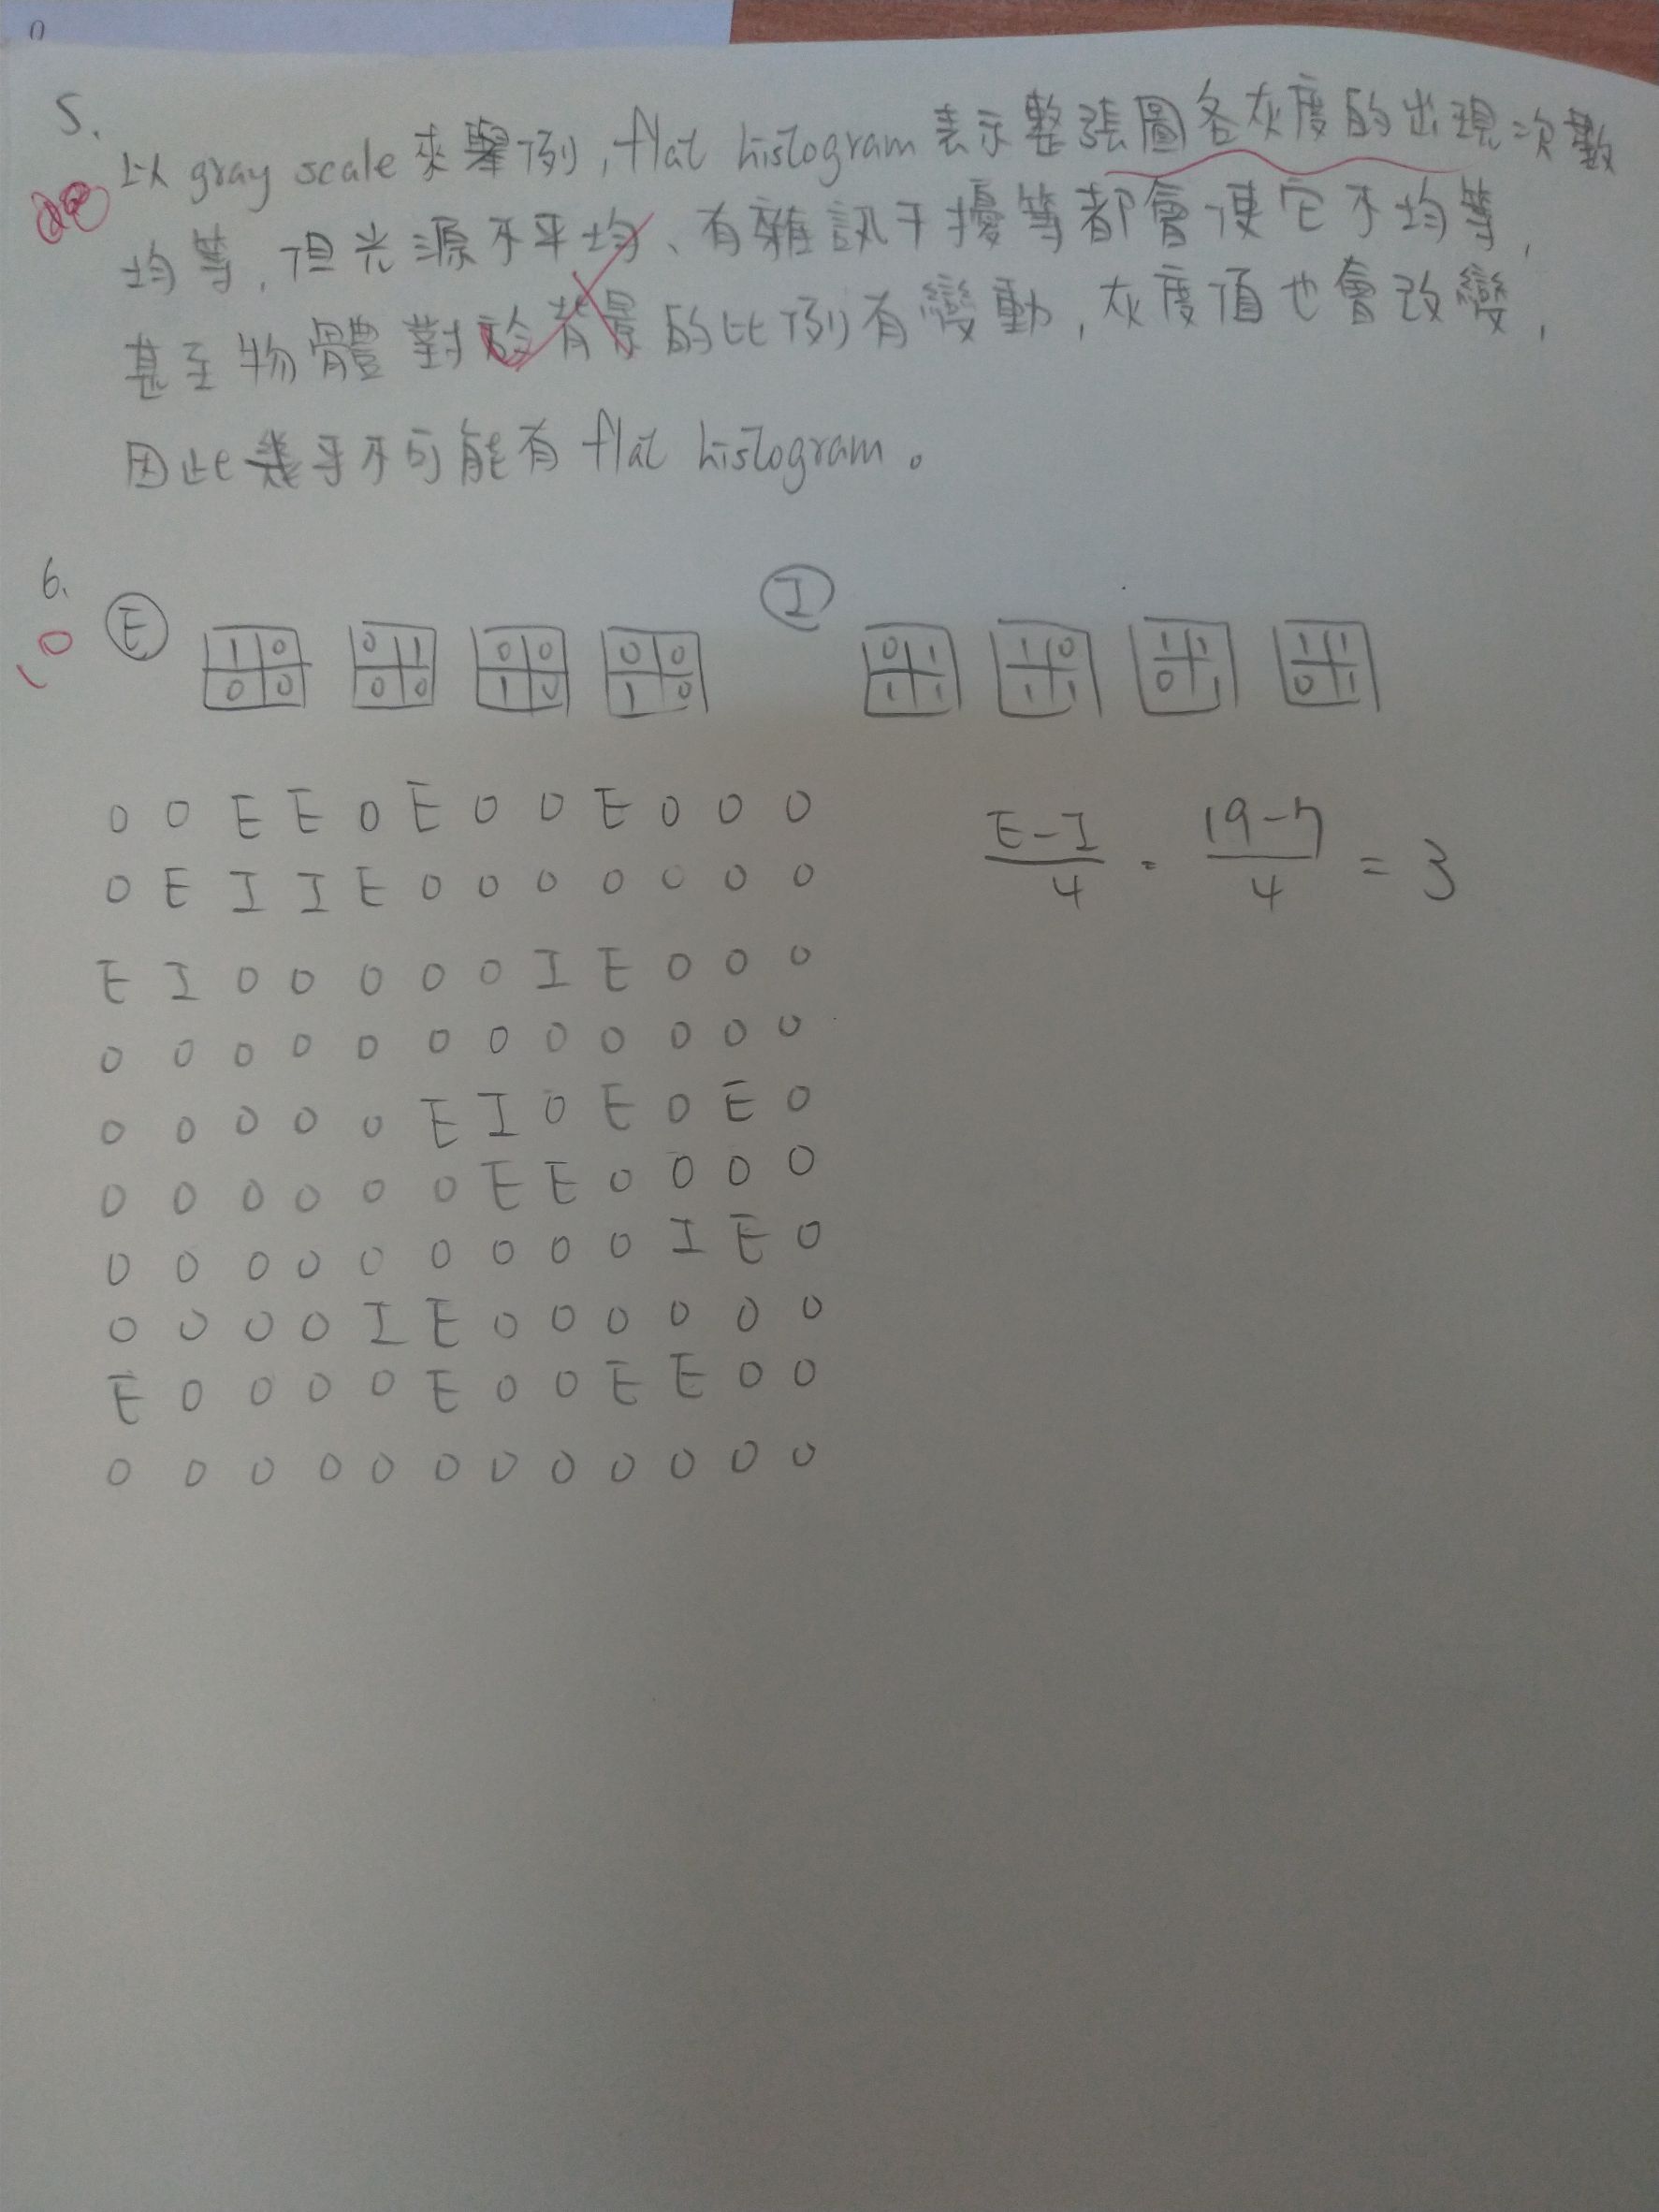 0
5.
以 gray scale 來舉例, flat histogram 表示整張圖各灰度的出現次數
均等, 但光源不平均、有雜訊干擾等都會使它不均等,
甚至物體對於背景的比例有變動, 灰度值也會改變,
因此幾乎不可能有 flat histogram。
6.
10
E I
1 0 0 1 0 0 0 0 0 1 1 0 1 1 1 1
0 0 0 0 1 0 1 0 1 1 1 1 0 1 0 1
0 0 E E 0 E 0 0 E 0 0 0
0 E I I E 0 0 0 0 0 0 0
E-I/4 = 19-7/4 = 3
E I 0 0 0 0 0 I E 0 0 0
0 0 0 0 0 0 0 0 0 0 0 0
0 0 0 0 0 E I 0 E 0 E 0
0 0 0 0 0 0 E E 0 0 0 0
0 0 0 0 0 0 0 0 0 I E 0
0 0 0 0 I E 0 0 0 0 0 0
E 0 0 0 0 E 0 0 E E 0 0
0 0 0 0 0 0 0 0 0 0 0 0